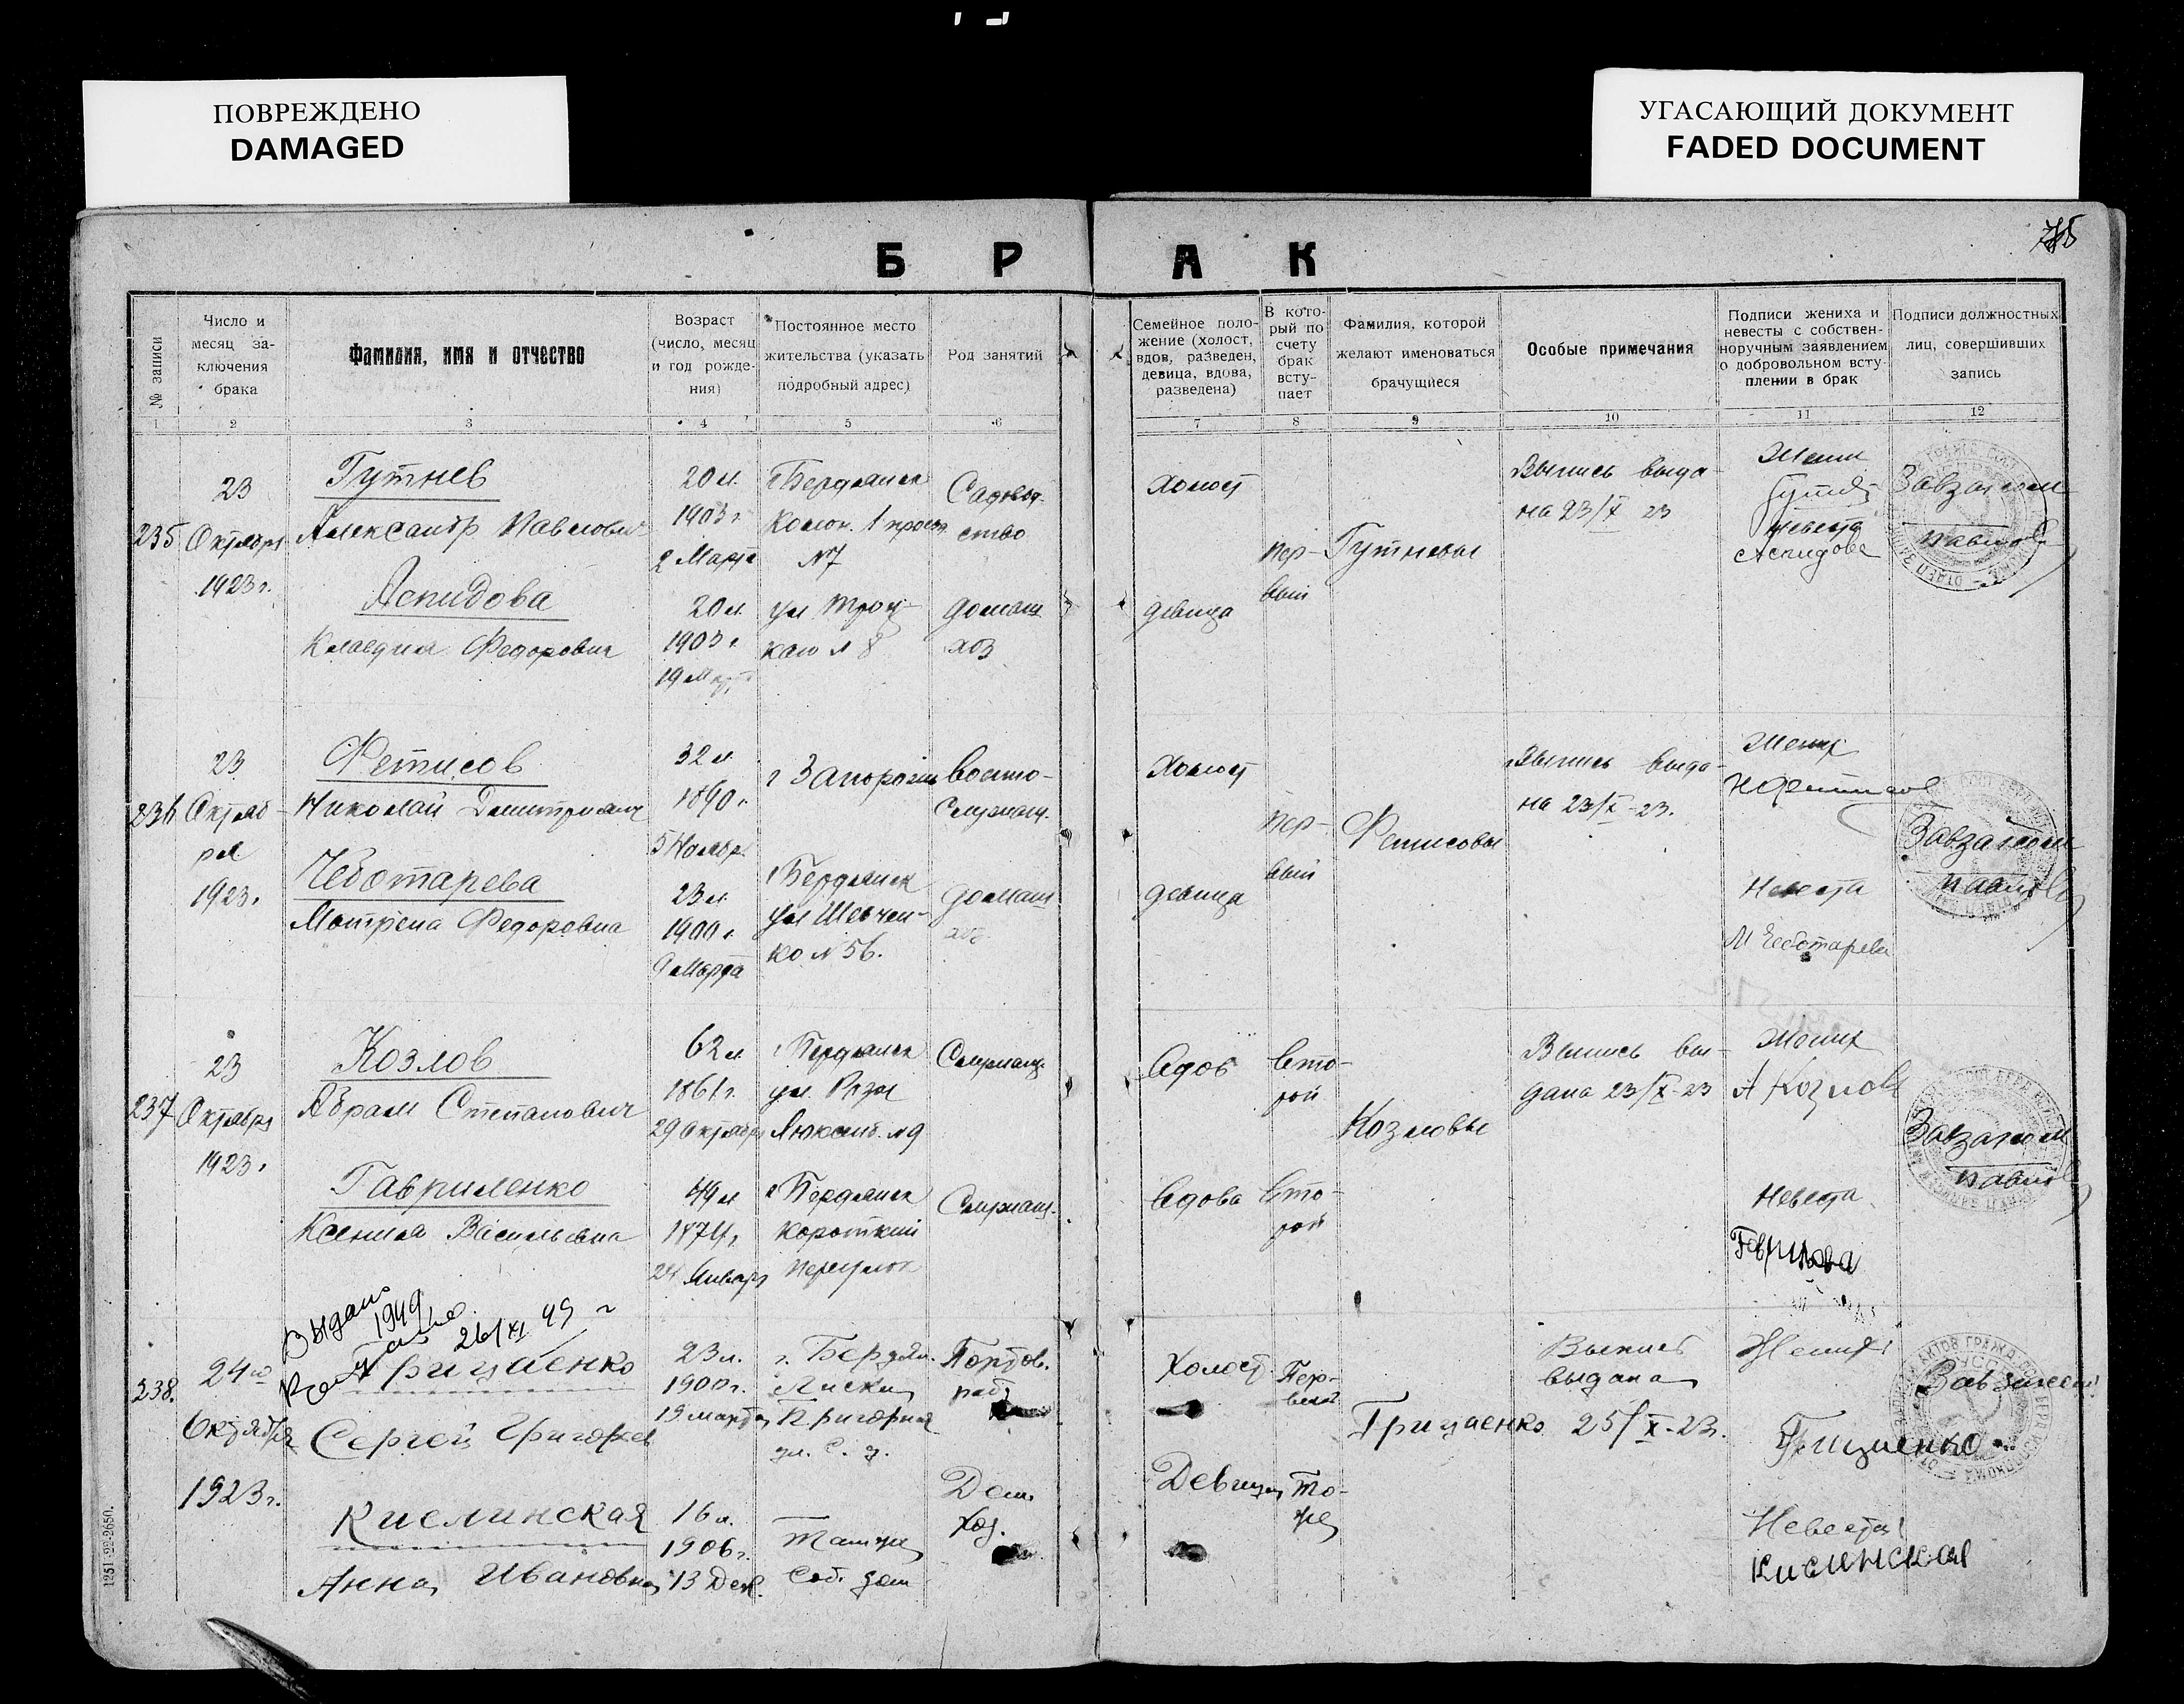 ПОВРЕЖДЕНО
DAMAGED
УГАСАЮЩИЙ ДОКУМЕНТ
FADED DOCUMENT
БРАК
№ записи
Число и
месяц за-
ключения
брака
Фамилия, имя и отчество
Возраст
(число, месяц
и год рожде-
ния)
Постоянное место
жительства (указать
подробный адрес)
Род занятий
Семейное поло-
жение (холост,
вдов, разведен,
девица, вдова,
разведена)
В кото-
рый по
счету
брак
всту-
пает
Фамилия, которой
желают именоваться
брачущиеся
Особые примечания
Подписи жениха и
невесты с собствен-
норучным заявлением
о добровольном всту
плении в брак
Подписи должностных
лиц, совершивших
запись
1 2 3 4 5 6 7 8 9 10 11 12
235
23
Октября
1923 г.
Гутнев
Александр Павлович
20 л.
1903 г
2 Марта
г Бердянск
Колон. 1 просп
№7
Садовод-
ство
Холост
Пер-
вый
Гутневы
Выпись выда-
на 23/X 23
Жених
Невеста
Аспидова
Завзагсом
Павлов
Аспидова
Клавдия Федоровна
20 л.
1903 г
19 Март
ул Троц-
каго № 8
домаш
хоз
девица
236
23
Октяб-
ря
1923 г
Фетисов
Николай Дмитриевич
32 л
1890 г
5 Ноябр.
г Запорожье
Военно-
Служащ.
Холост
Пер-
вый
Фетисовы
Выпись выда-
на 23/X-23.
Жених
Н Фетисов
Завзагсом
Павлов
Чеботарева
Матрена Федоровна
23 л.
1900 г
9 Марта
г Бердянск
ул Шевчен-
ко № 56.
домаш
хоз.
девица
Невеста
М Чеботарева
237
23
Октября
1923 г
Козлов
Абрам Степанович
62 л.
1861 г.
29 Октября
г Бердянск
ул. Розы
Люксенб. № 9
Служащ.
Вдов
Вто-
рой
Козловы
Выпись вы-
дана 23/X-23
Жених
А Козлов
Завзагсом
Павлов
Гавриленко
Ксения Васильевна
49 л
1874 г.
24 Январ
г Бердянск
Короткий
переулок
Служащ.
Вдова
Вто-
рой
Невеста
Выдано
1949
26/XI 49 г
238.
24го
Октября
1923 г.
Грицаенко
Сергей Григорьев
23 л.
1900 г.
19 марта
г. Бердян.
Лиски
Портов.
раб.
Холост
Пер-
вый
Грицаенко
Выпись
выдана
25/X-23.
Жених
Завзагсом
Кислинская
Анна Ивановна
16 л.
1906 г.
13 Дек.
Там же
Соб. дом
Дом.
Хоз.
Девица
То-
же
Невеста
Кислинская
1251-22-2650.